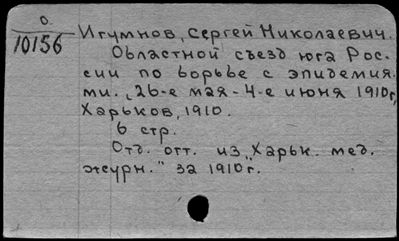 О.
10156
Игумнов, Сергей Николаевич.
Областной съезд юга Рос-
сии по борьбе с эпидемия-
ми. 26-е мая-4-е июня 1910г.
Харьков, 1910.
6 стр.
Отд. отт. из „Харьк. мед.
журн." за 1910г.